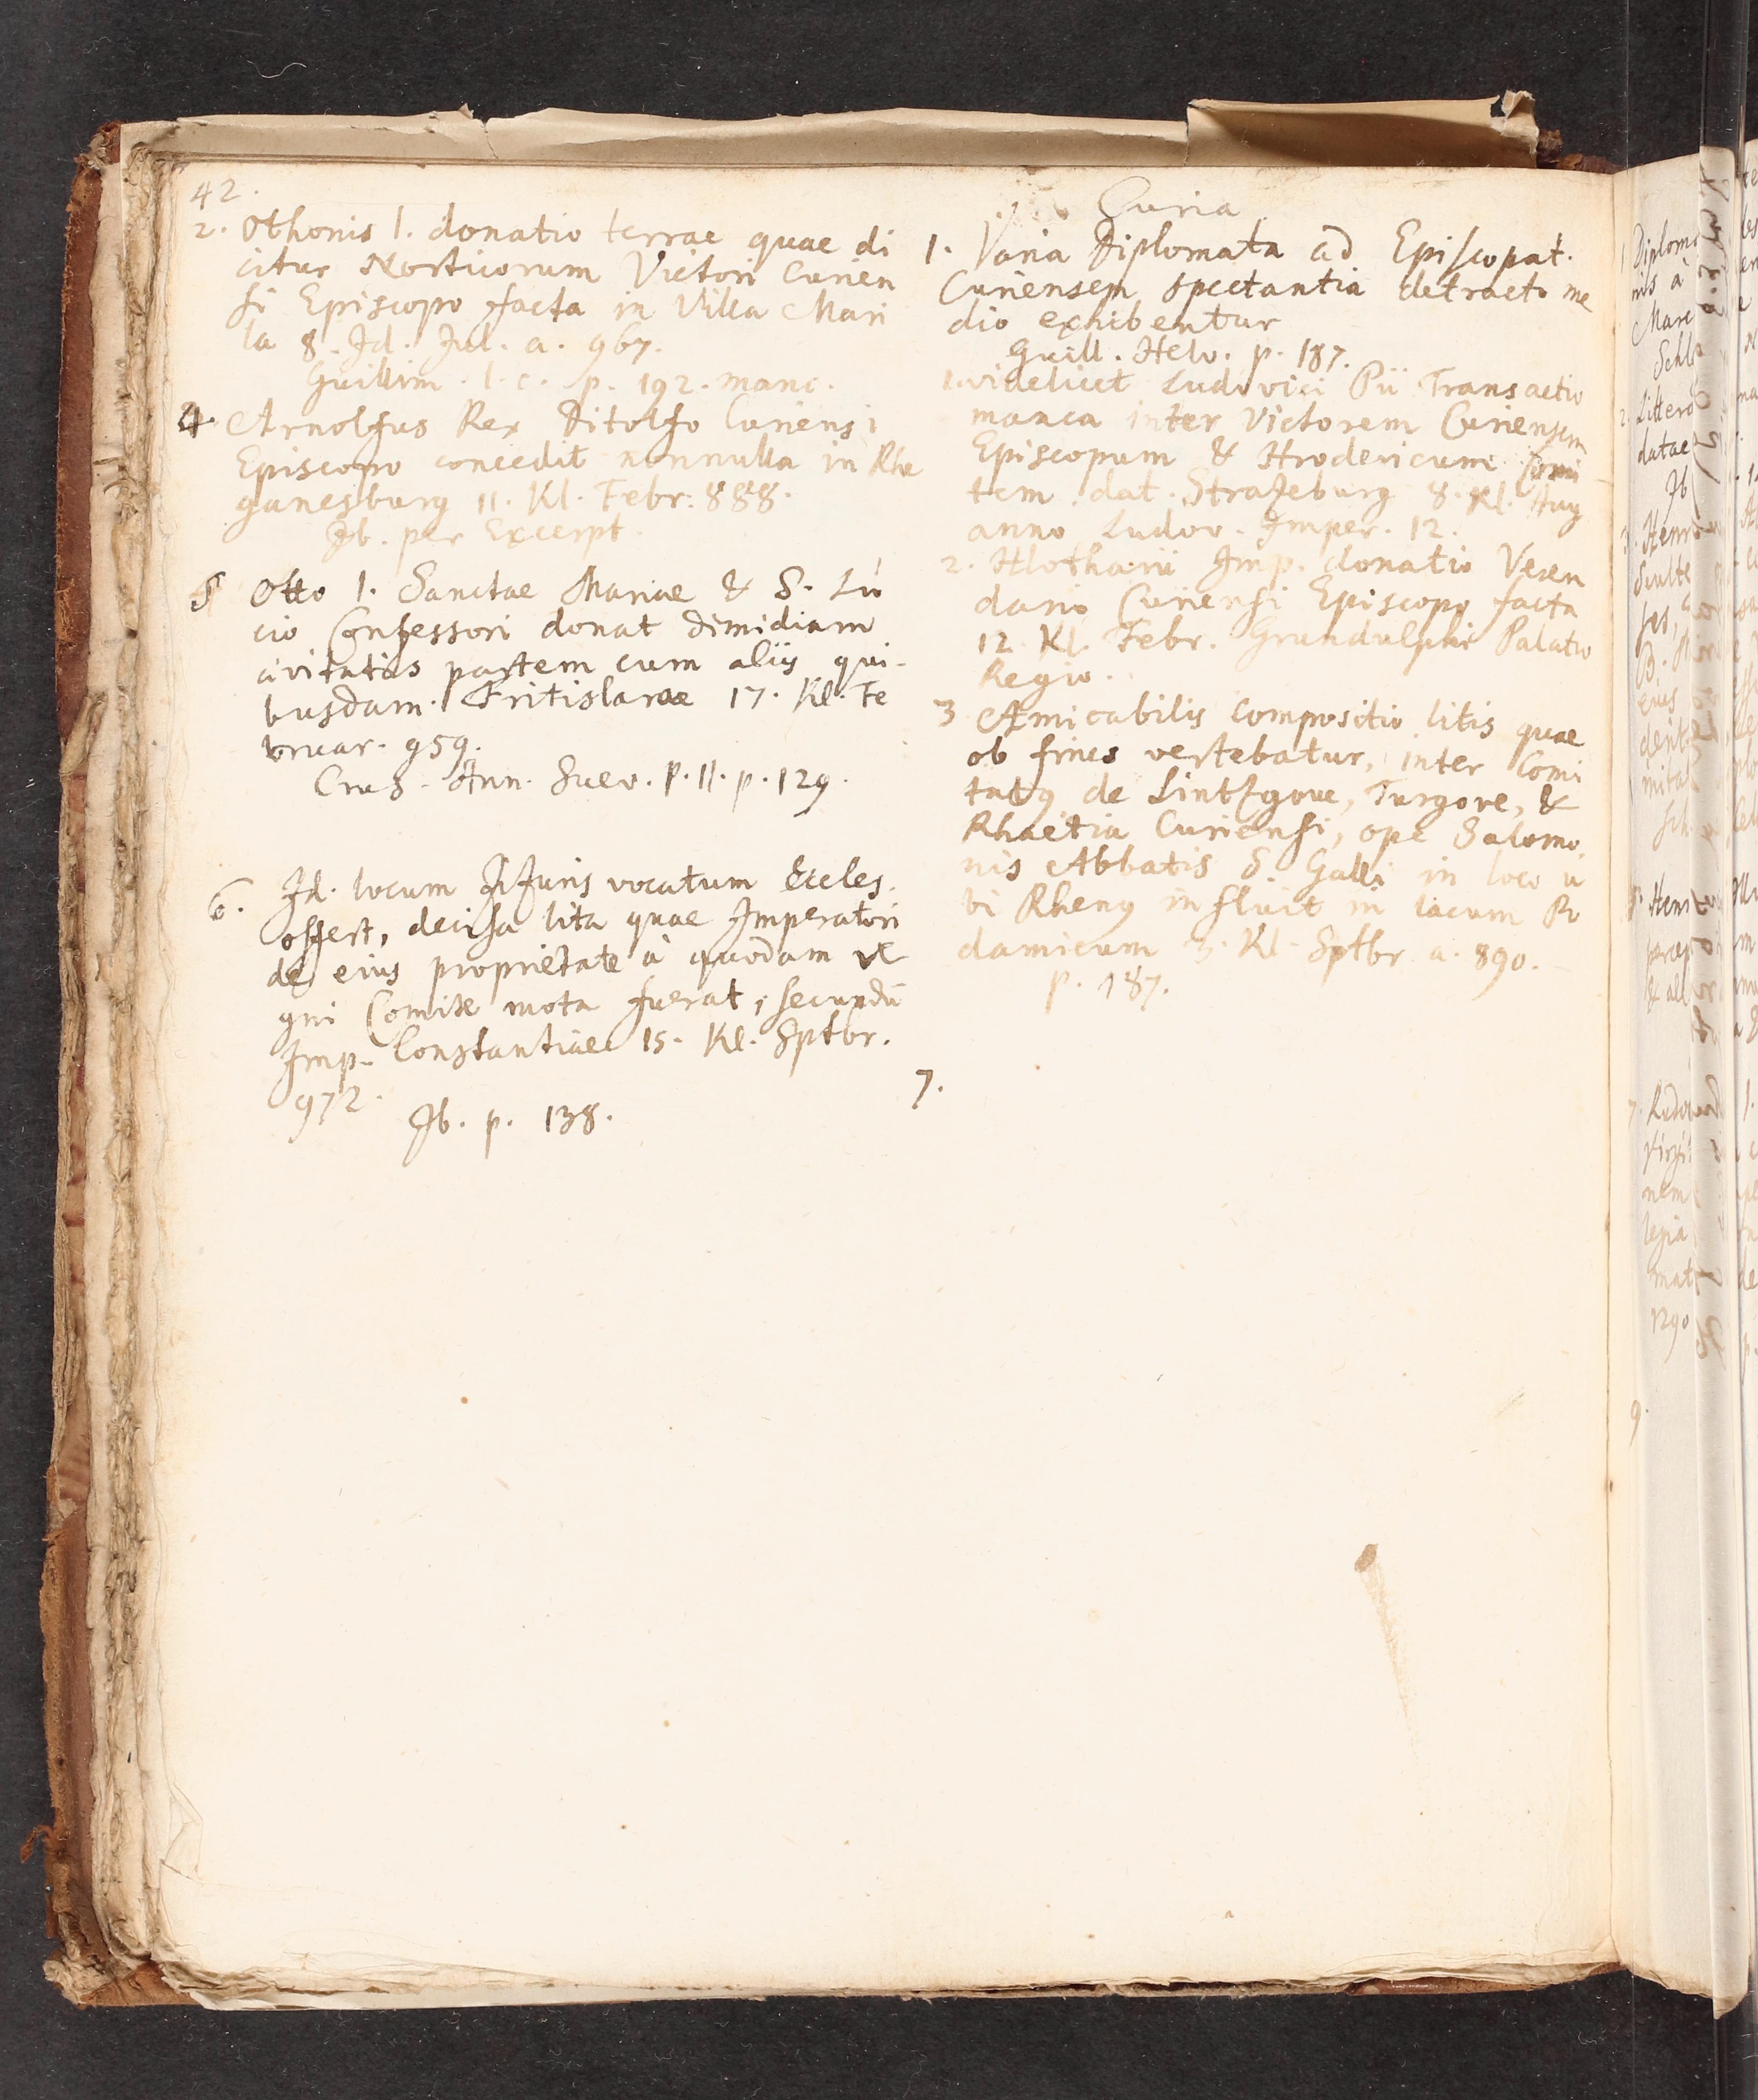 42.
2. Othonis I. donatio terrae quae di
citur Norticorum Victori Curien
si Episcopo facta in Villa Mari
la 8. Id. Jul. a. 967.
Guillim. l. c. p. 192. manc.
4. Arnolfus Rex Ditolfo Curiensi
Episcopo concedit nonnulla in Rhe
ganesburg 11. Kl. Febr. 888.
Ib. per Excerpt.
5 Otto I. Sanctae Mariae & S. Lu
cio Confessori donat dimidiam
civitatis partem cum aliis qui-
busdam. Fritislarae 17. Kl. Fe
bruar. 959.
Crus. Ann. Suev. p. II. p. 129.
6. Id. locum Zizuris vocatum Eccles.
offert, decisa lita quae Imperatori
de eius proprietate à quodam re
gni Comite mota fuerat, secundū
Imp. Constantiae 15. Kl. Sptbr.
972.
Ib. p. 138.
Curia
1. Varia Diplomata ad Episcopat.
Curiensem spectantia detracto me
dio exhibentur
Guill. Helv. p. 187.
1. videlicet Ludovici Pii Transactio
manca inter Victorem Curiensem
Episcopum & Hrodericum Comi
tem dat. Strazeburg 8. Kl. Aug
anno Ludov. Imper. 12.
2. Hlotharii Imp. donatio Veren
dario Curiensi Episcopo facta
12. Kl. Febr. Grundulphi Palatio
Regio.
3 Amicabilis compositio litis quae
ob fines vertebatur, inter Comi
tatq de Lintzgove, Turgove, &
Rhaetia Curiensi, ope Salomo
nis Abbatis S. Galli in loco u
bi Rheng influit in lacum Po
damicum 3. Kl. Sptbr a. 890.
p. 187.
7.